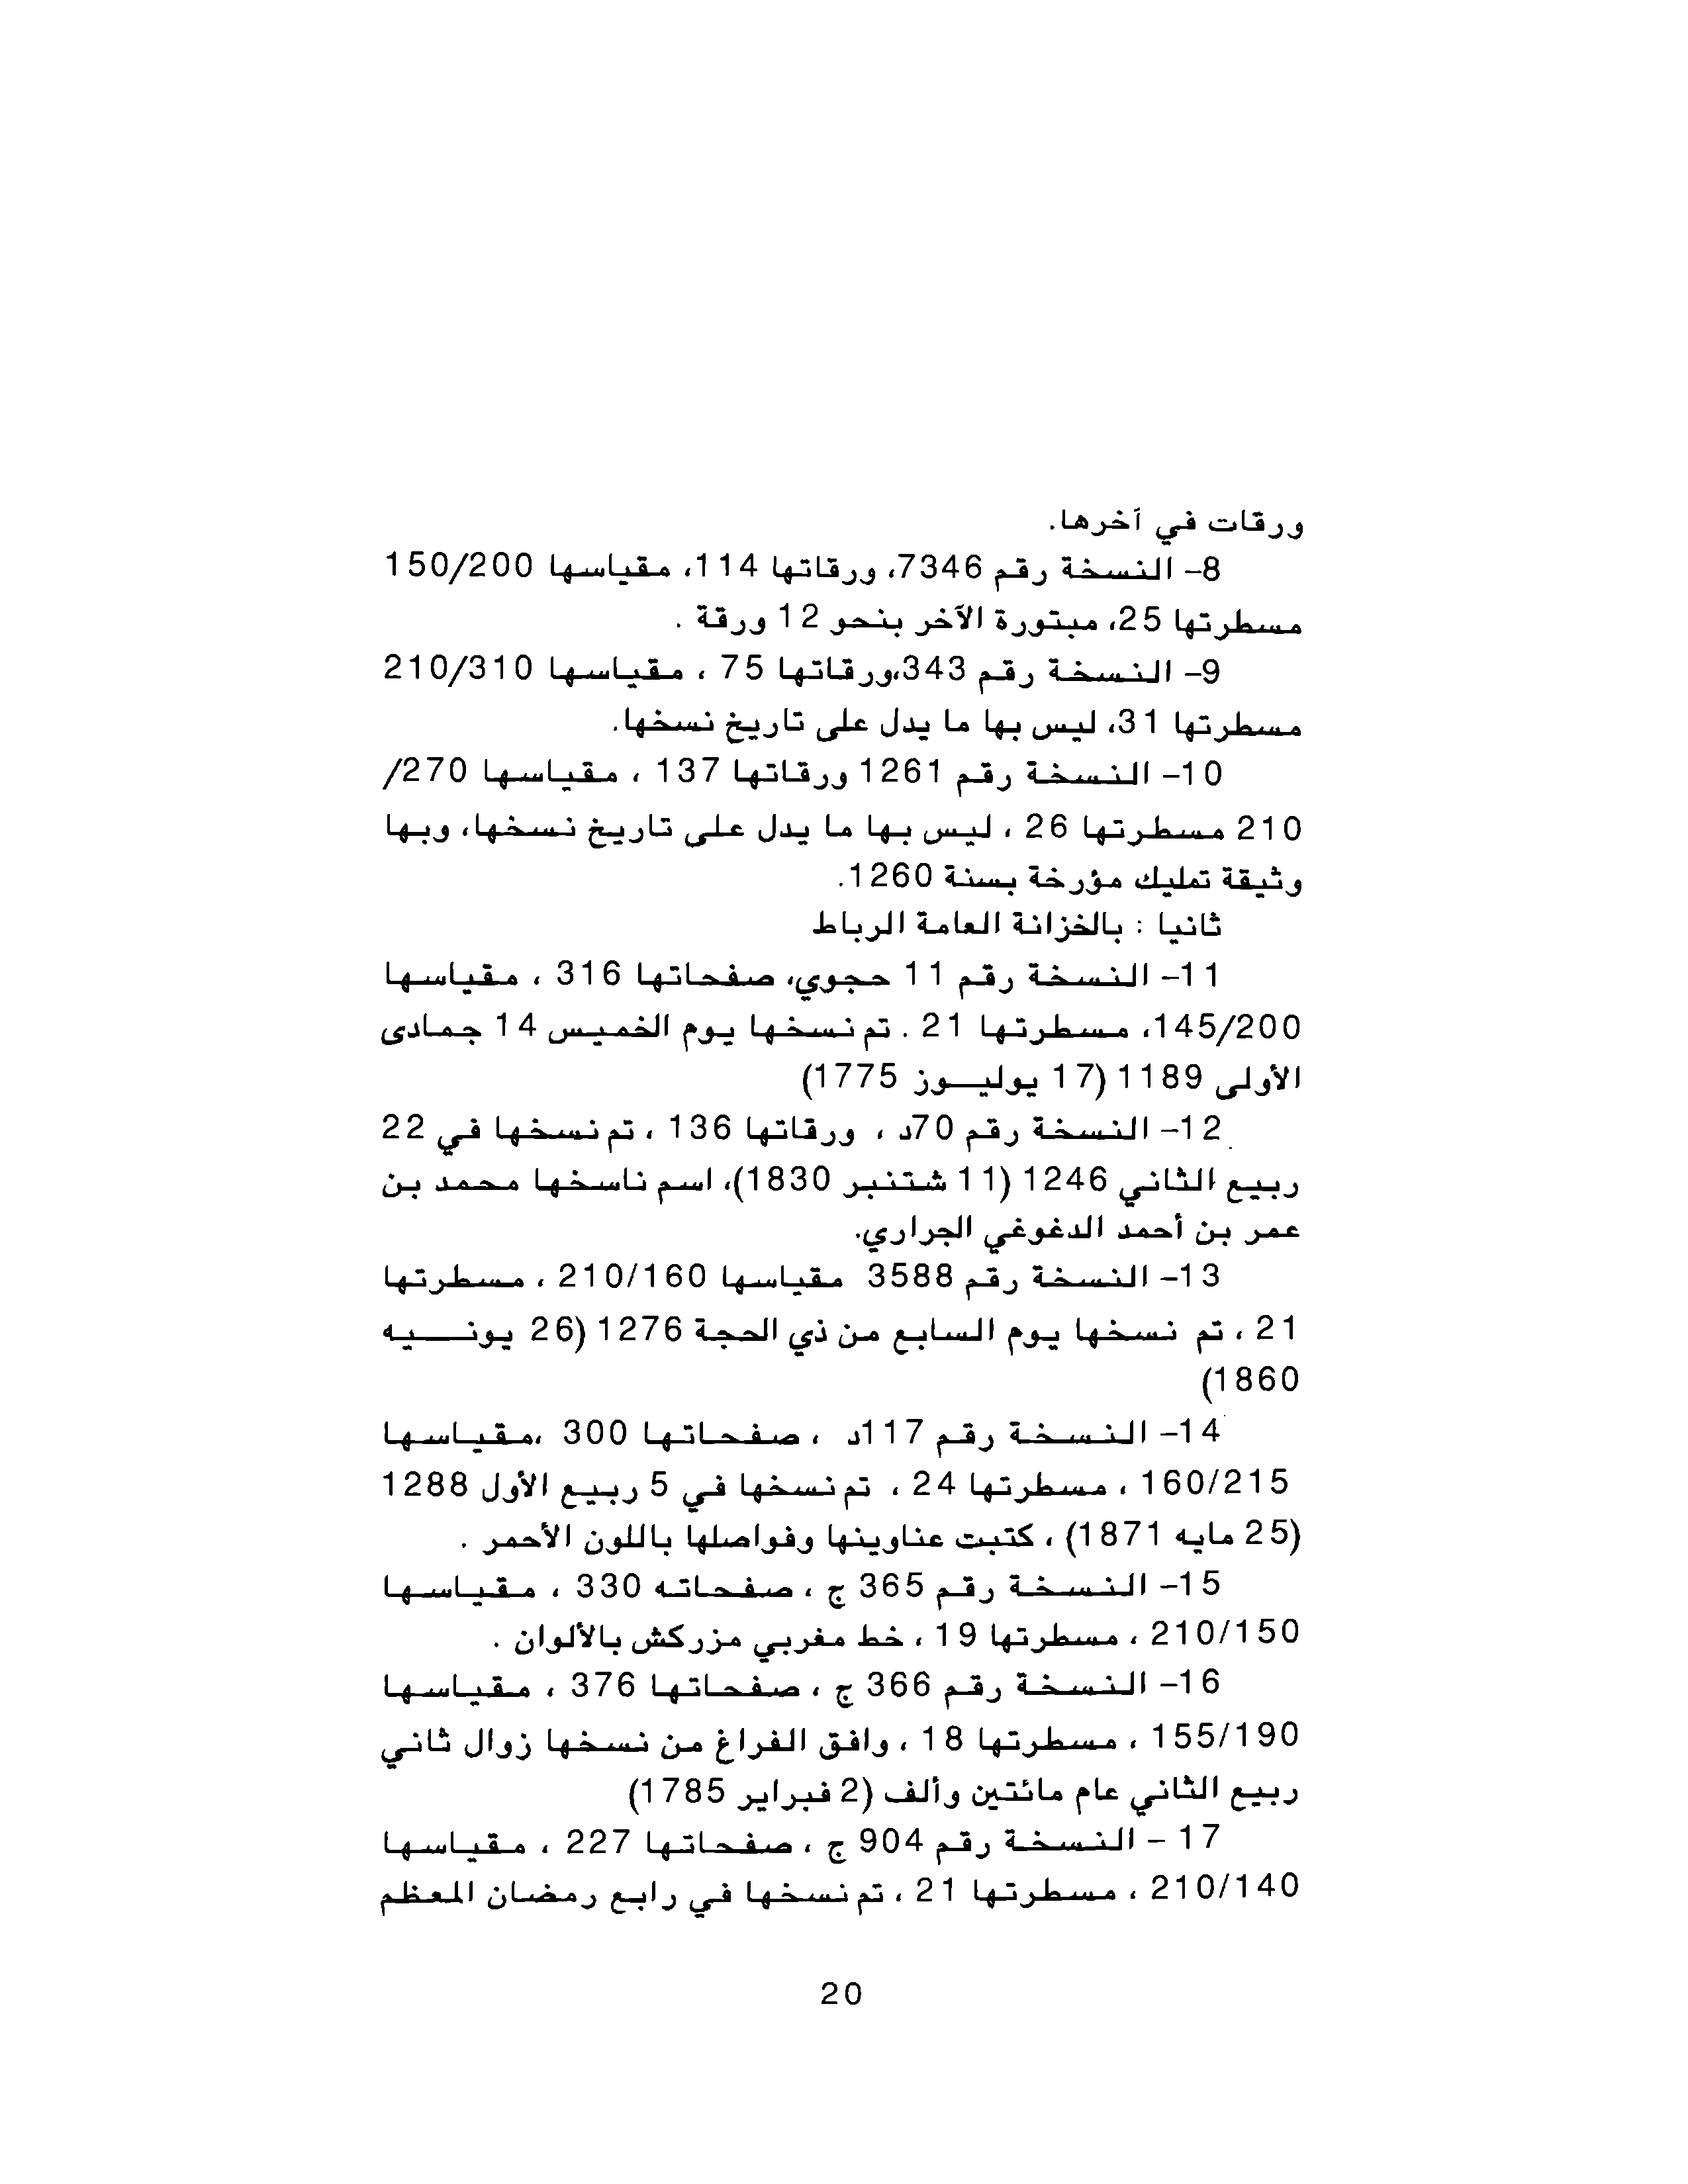 ورقات في آخرها.
8- النسخة رقم 7346، ورقاتها 114، مقياسها 150/200
مسطرتها 25، مبتورة الآخر بنحو 12 ورقة .
9- النسخة رقم 343،ورقاتها 75 ، مقياسها 210/310
مسطرتها 31، ليس بها ما يدل على تاريخ نسخها.
10- النسخة رقم 1261 ورقاتها 137 ، مقياسها 270/
210 مسطرتها 26 ، ليس بها ما يدل على تاريخ نسخها، وبها
وثيقة تمليك مؤرخة بسنة 1260.
ثانيا : بالخزانة العامة الرباط
11- النسخة رقم 11 حجوي، صفحاتها 316 ، مقياسها
145/200، مسطرتها 21 . تم نسخها يوم الخميس 14 جمادى
الأولى 1189 (17 يوليوز 1775)
12- النسخة رقم 70د ، ورقاتها 136 ، تم نسخها في 22
ربيع الثاني 1246 (11 شتنبر 1830)، اسم ناسخها محمد بن
عمر بن أحمد الدغوغي الجراري.
13- النسخة رقم 3588 مقياسها 210/160 ، مسطرتها
21 ، تم نسخها يوم السابع من ذي الحجة 1276 (26 يونيه
1860)
14- النسخة رقم 117د ، صفحاتها 300 ،مقياسها
160/215 ، مسطرتها 24 ، تم نسخها في 5 ربيع الأول 1288
(25 مايه 1871) ، كتبت عناوينها وفواصلها باللون الأحمر .
15- النسخة رقم 365 ج ، صفحاته 330 ، مقياسها
210/150 ، مسطرتها 19 ، خط مغربي مزركش بالألوان .
16- النسخة رقم 366 ج ، صفحاتها 376 ، مقياسها
155/190 ، مسطرتها 18 ، وافق الفراغ من نسخها زوال ثاني
ربيع الثاني عام مائتين وألف (2 فبراير 1785)
17 - النسخة رقم 904 ج ، صفحاتها 227 ، مقياسها
210/140 ، مسطرتها 21 ، تم نسخها في رابع رمضان المعظم
20